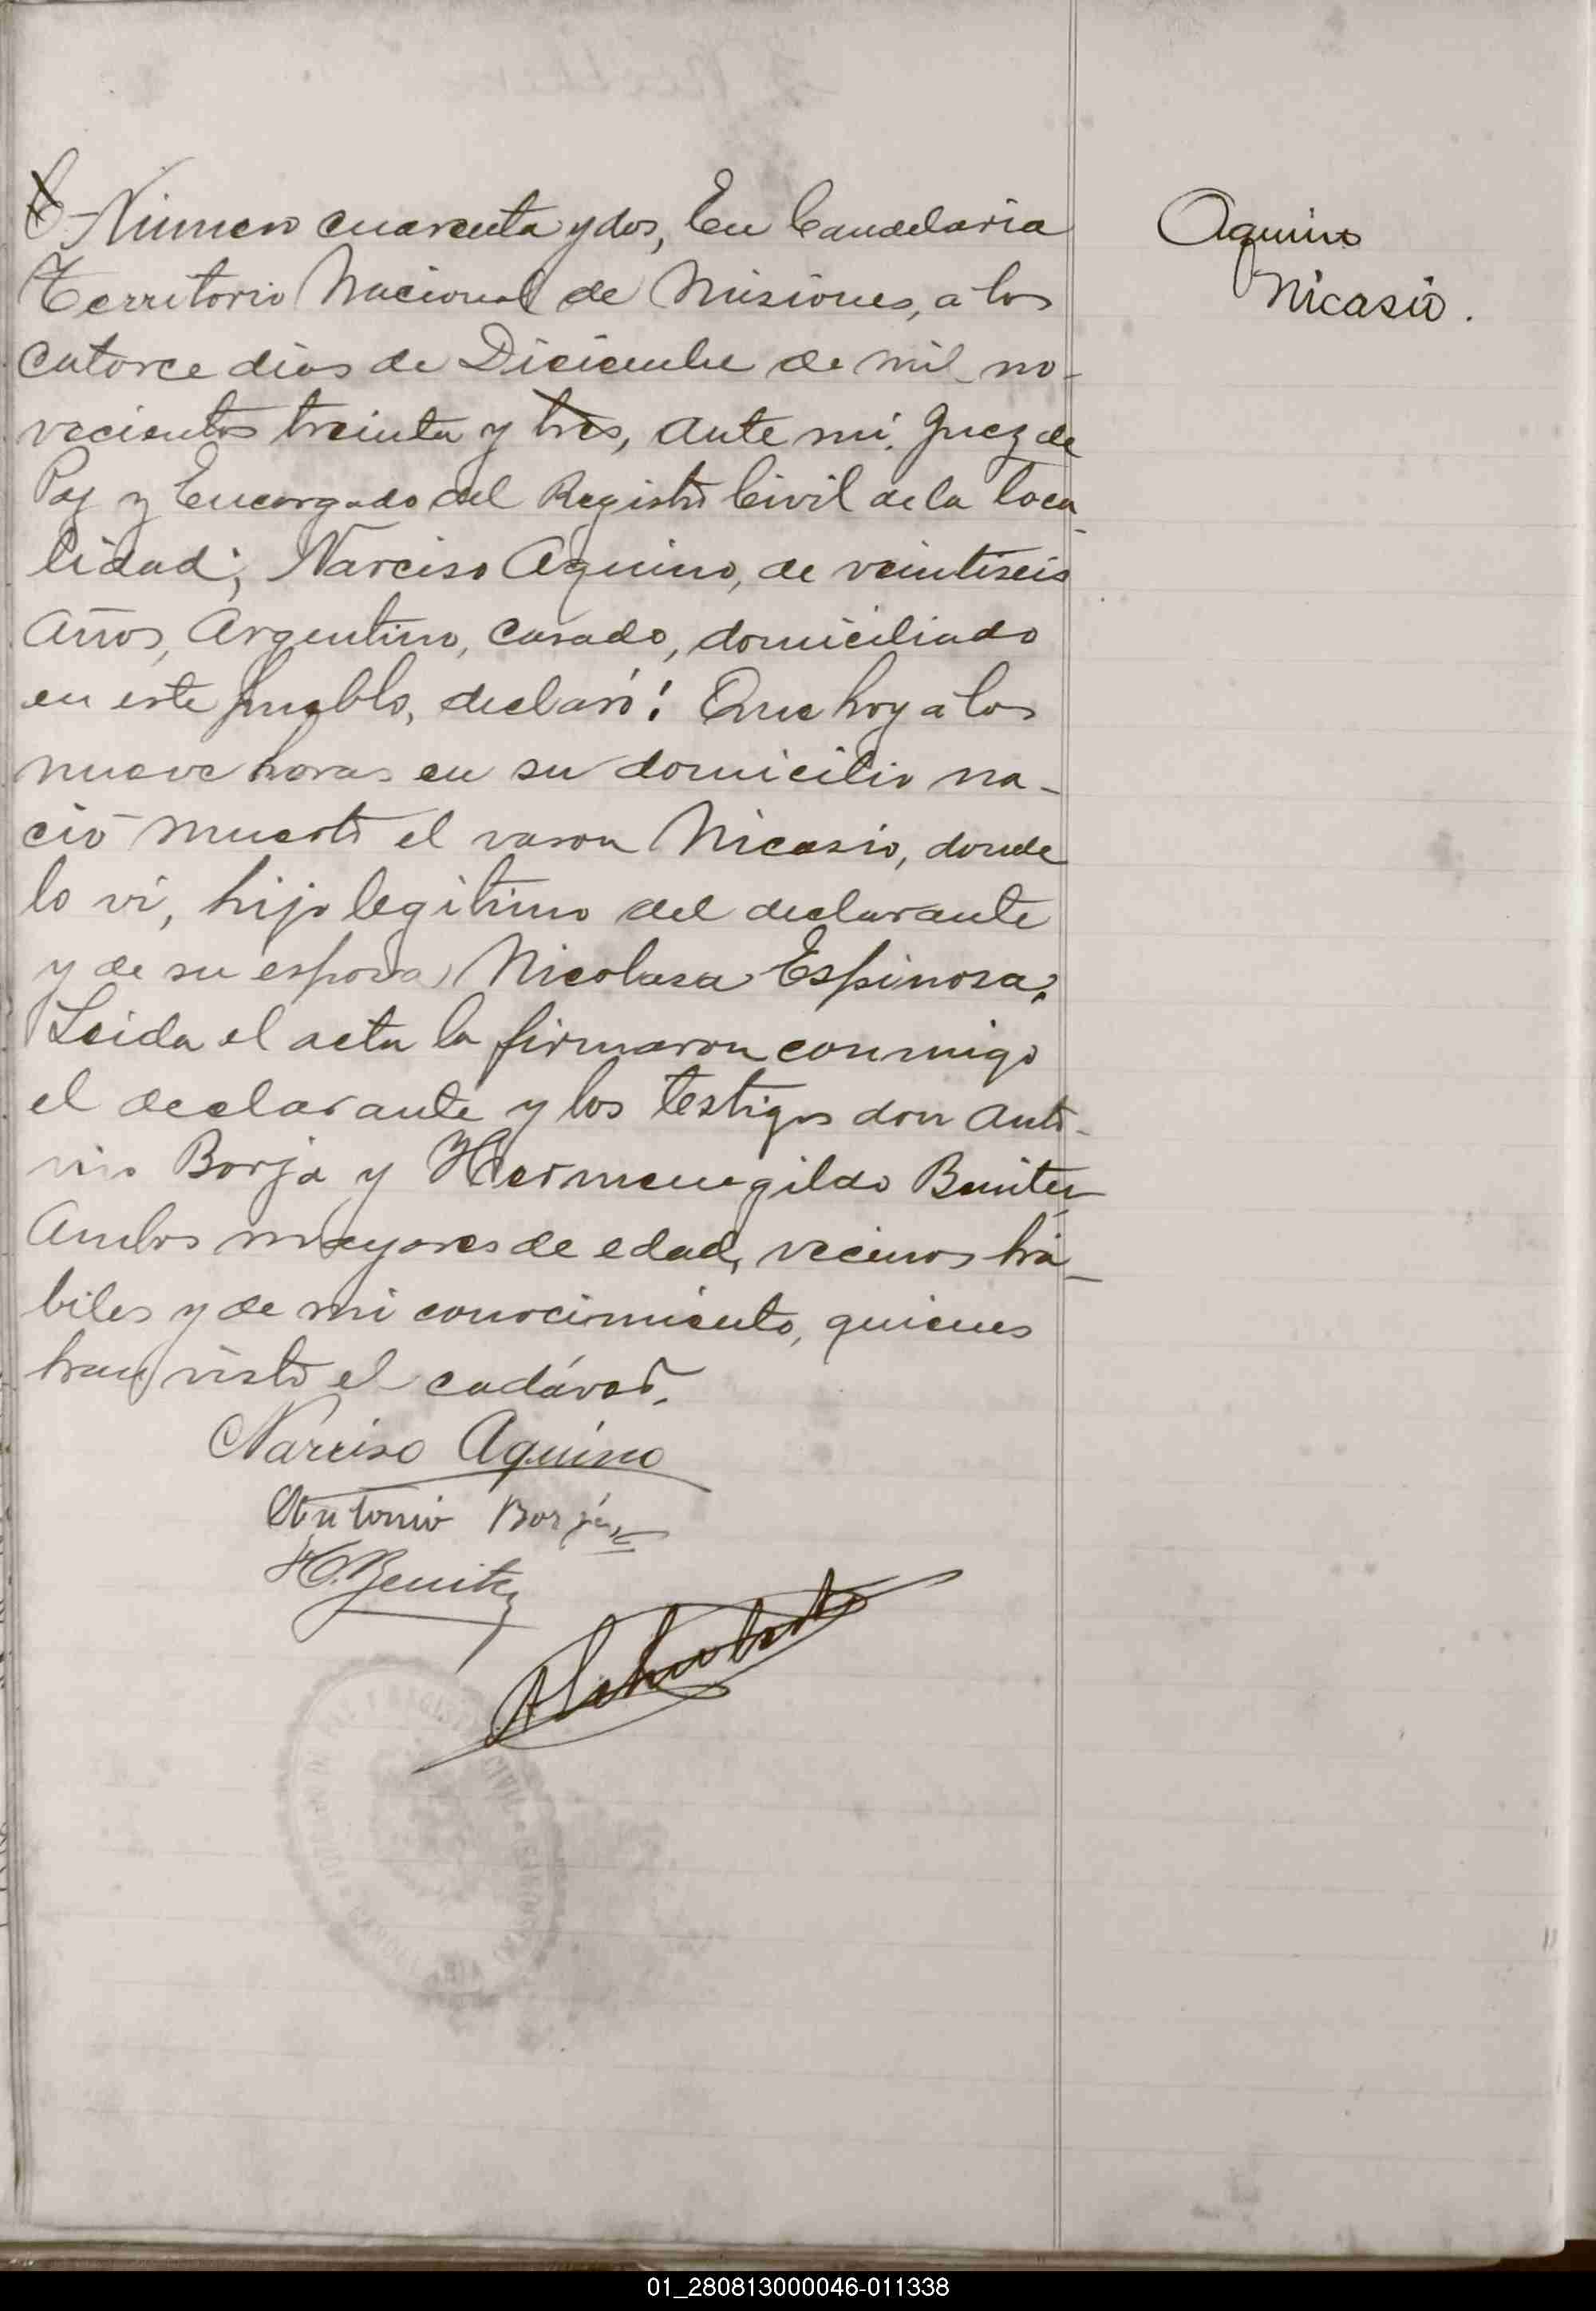 Número cuarenta y dos, En Candelaria
Territorio Nacional de Misiones, a los
catorce dias de Diciembre de mil no-
vecientos treinta y tres, ante mi. Juez de
Paz y Encargado del Registro Civil de la loca-
lidad; Narciso Aquino, de veintiseis
años, Argentino, casado, domiciliado
en este pueblo, declaró: Que hoy a las
nueve horas en su domicilio na-
ció muerto el varon Nicasio, donde
lo vi, hijo legitimo del declarante
y de su esposa Nicolasa Espinosa.
Leida el acta la firmaron conmigo
el declarante y los testigos don Anto-
nio Borja y Hermenegildo Benitez
Ambos mayores de edad, vecinos há-
biles y de mi conocimiento, quienes
han visto el cadáver.
Narciso Aquino
Antonio Borja
H. Benitez
Aquino
Nicasio.
REGISTRO CIVIL
01_280813000046-011338